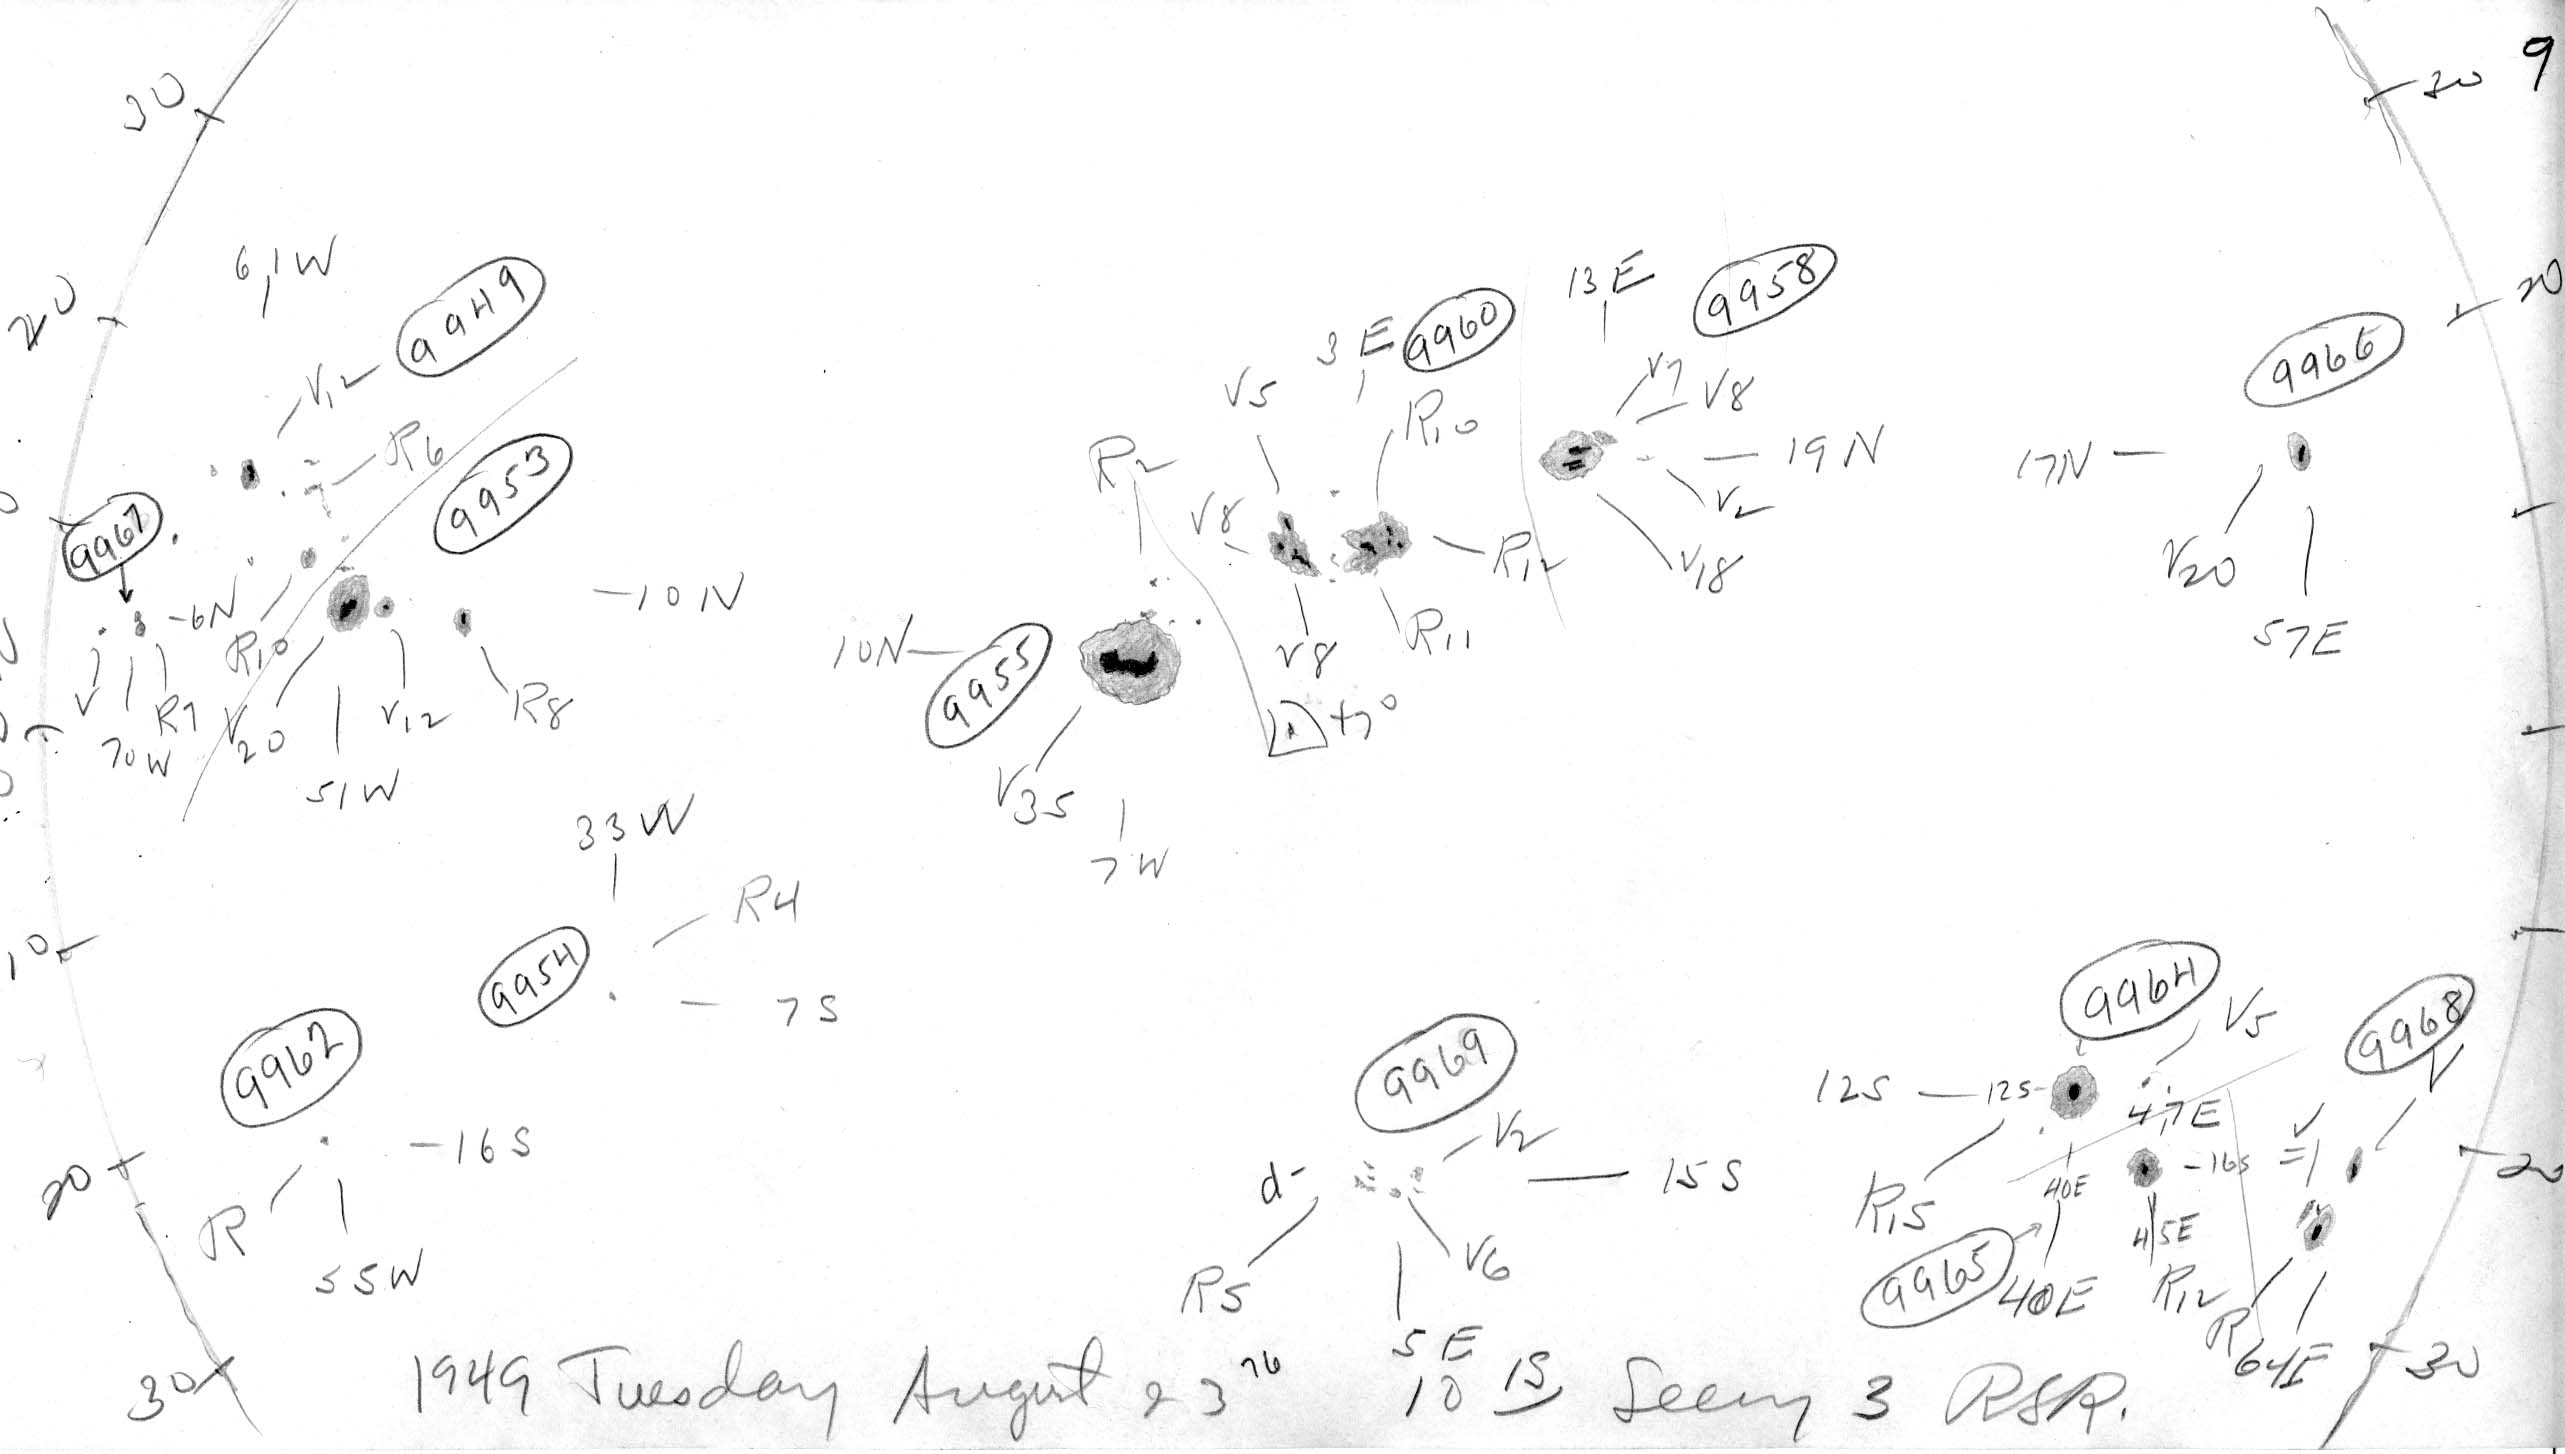 9
30
30
20
20
61W
9949
V12
R6
9953
9967
-6N
R10
V
R7
70W
V20
V12
R8
51W
-10N
3E
9960
13E
9958
V5
R10
V7
V8
R2
V8
R12
-19N
V2
V18
V8
R11
10N-
9955
+7°
V35
7W
9966
17N-
V20
57E
33W
R4
9954
-7S
10
9962
-16S
R
55W
20
30
9969
V2
d-
-15S
R5
V6
5E
9964
V5
9968
V
12S-12S-
47E
V
R15
40E
-16S
20
9965
40E
45E
R12
R
64E
30
1949 Tuesday August 23 10 15 Seeing 3 RSR.